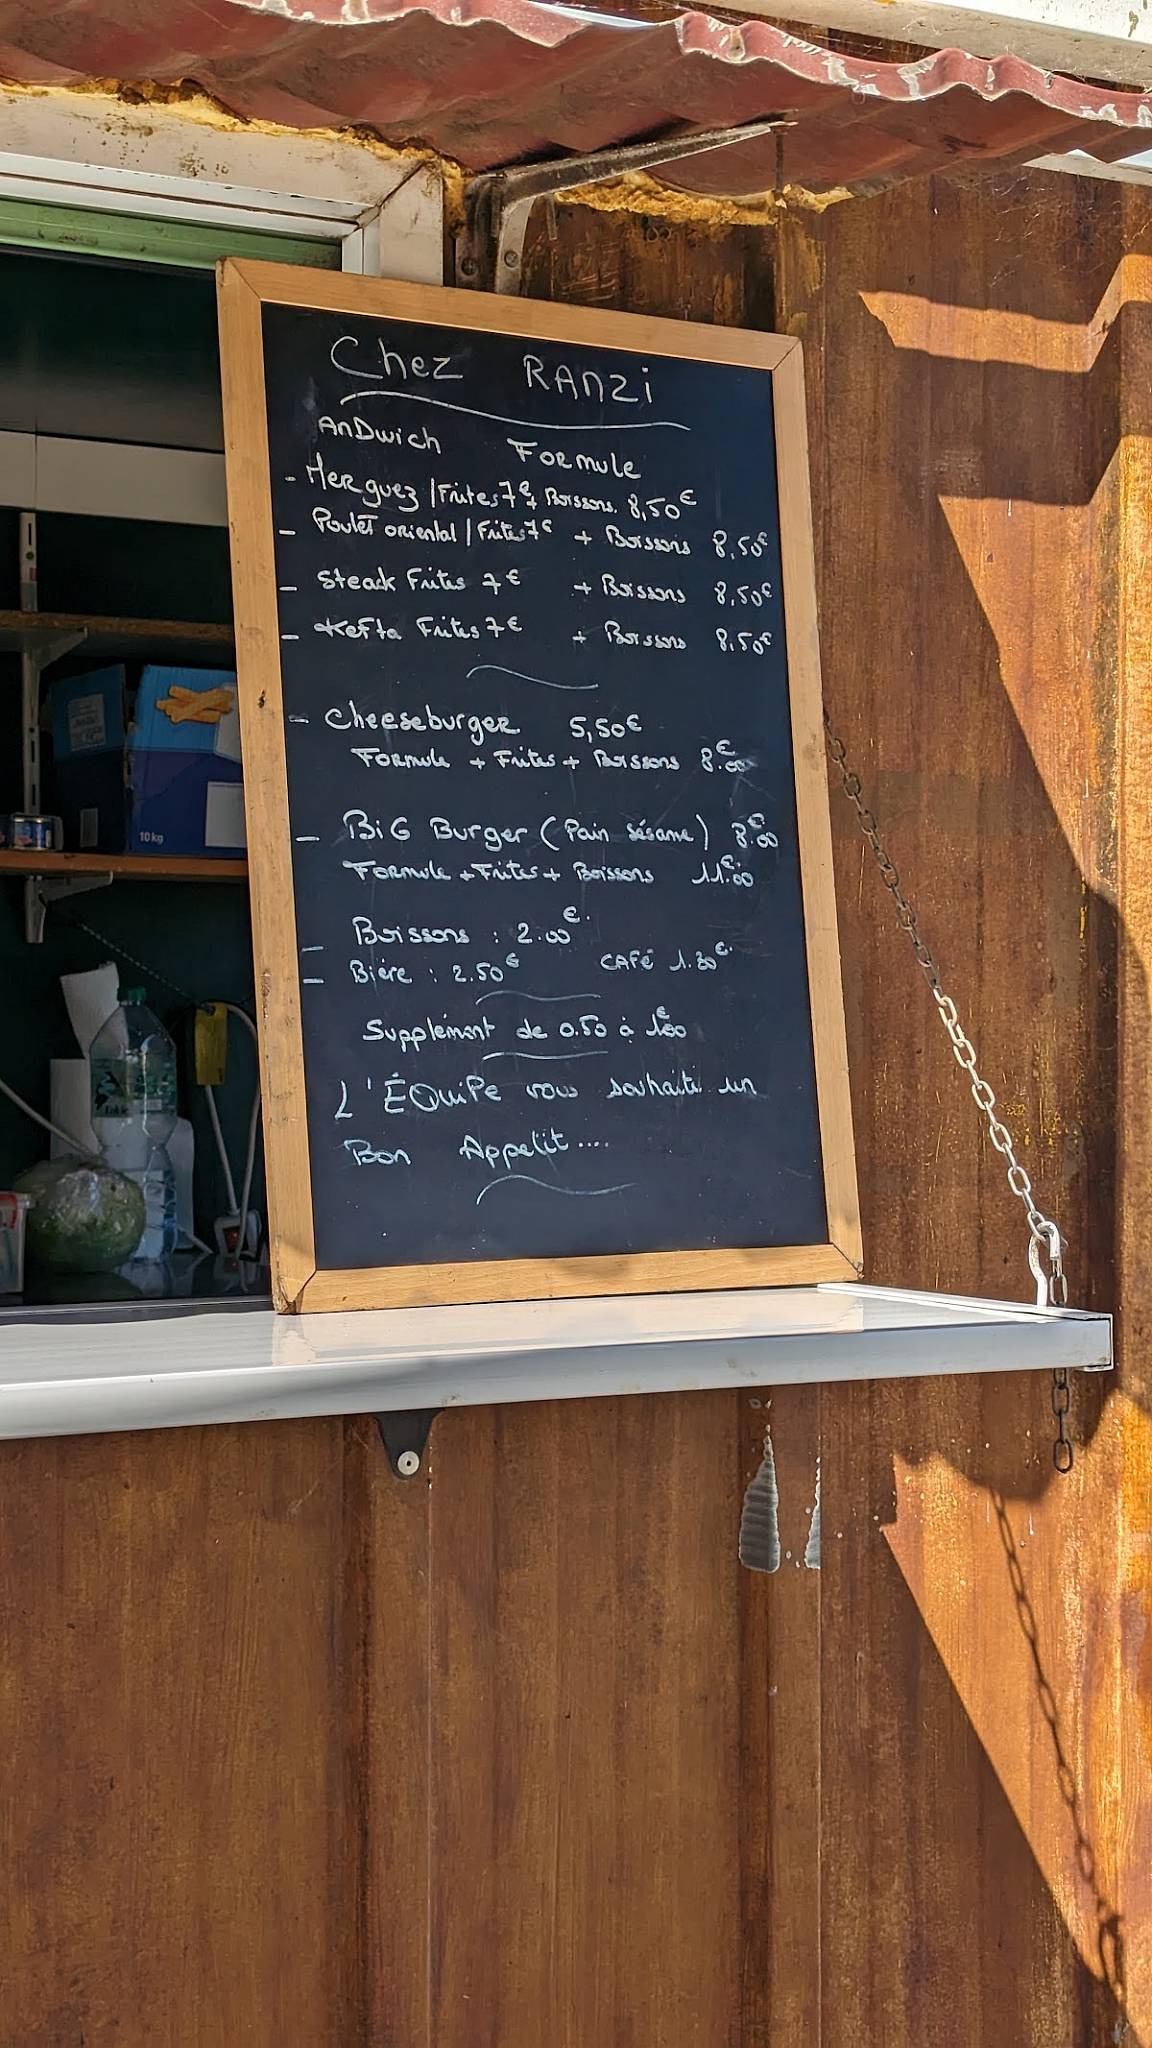 Chez RANZI
ANDwich Formule
- Merguez / Frites 7€ + Boissons. 8,50€
- Poulet oriental / Frites 7€ + Boissons 8,50€
- Steack Frites 7€ + Boissons 8,50€
- Kefta Frites 7€ + Boissons 8,50€
- Cheeseburger 5,50€
Formule + Frites + Boissons 8.€00
- BiG Burger (Pain sésame) 8.€00
Formule + Frites + Boissons 11.€00
- Boissons : 2.00€.
- Bière : 2.50€ CAFé 1.30€.
Supplément de 0.50 à 1€00
L'ÉQuiPe vous souhaite un
Bon Appetit....
10kg